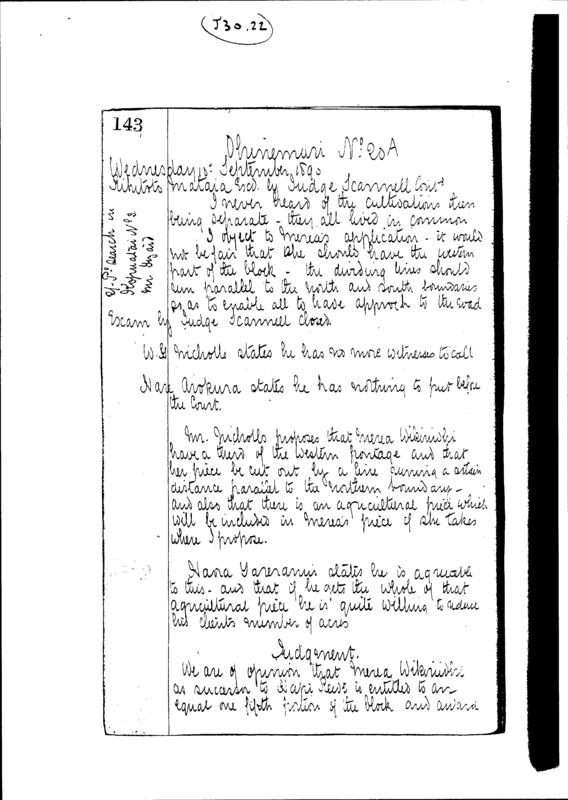 J30.22
143
Ohinemuri No 20A
Wednesday 10th September 1890
Rihitoto Mataia Exd. by Judge Scannell Contd
I never heard of the cultivations then
being separate - they all lived in common
I object to Merea's application - it would
not be fair that she should have the western
part of the block - the dividing lines should
run parallel to the north and south boundaries
so as to enable all to have approch to the road
Exam by Judge Scannell closed.
search in
No 2
Mr
W.G Nicholls states he has no more witnesses to call
Nare Arokura states he has nothing to put before
the Court.
Mr. Nicholls proposes that Merea Wikiriwhi
have a third of the western frontage and that
her piece be cut out by a line running a certain
distance parallel to the northern boundary -
and also that there is an agricultural piece which
will be included in Merea's piece if she takes
where I propose.
Hara states he is agreeable
to this - and that if he gets the whole of that
agricultural piece he is quite willing to reduce
his clients number of acres
Judgement.
We are of opinion that Merea Wikiriwhi
as successor to Hapi Rewi is entitled to an
equal one fifth portion of the block and award